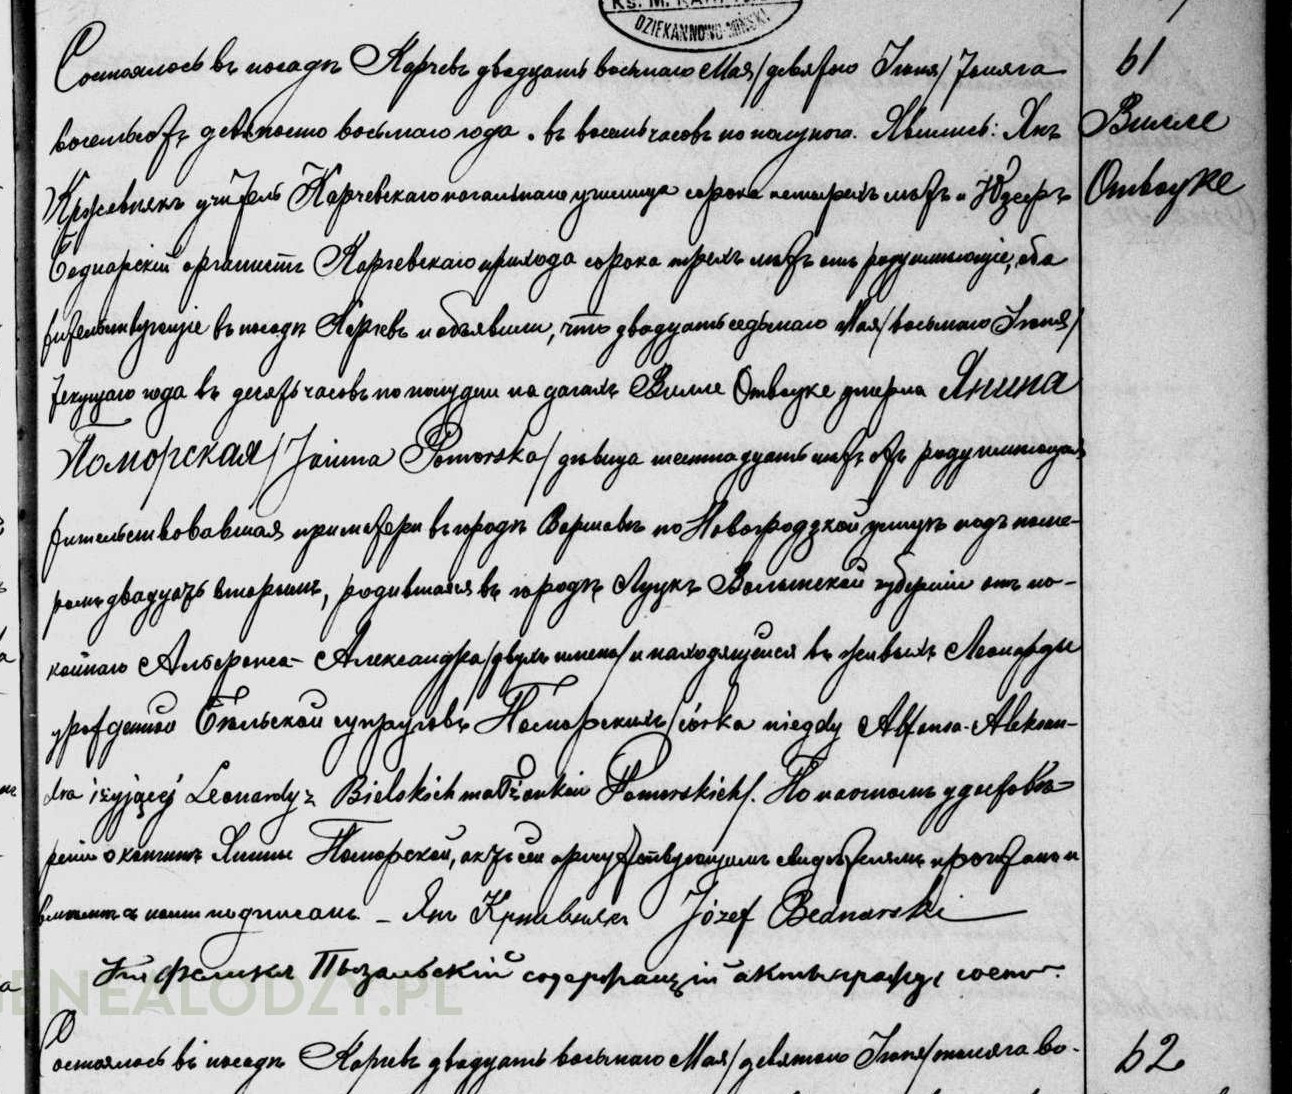 DZIEKAN NOWO-MIŃSKI
61
Вилле
Отвоцке
Состоялось въ посадѣ Карчевѣ двадцать восьмаго Мая /девятаго Іюня/ тысяча
восемьсотъ девяносто восьмаго года въ восемь часовъ по полудни. Явились: Янъ
учитель Карчевскаго начальнаго училища сорока четырехъ лѣтъ и Юзефъ
Беднарскій органистъ Карчевскаго прихода сорока трехъ лѣтъ отъ роду имѣющіе, оба
жительствующіе въ посадѣ Карчевѣ и объявили, что двадцать седьмаго Мая /восьмаго Іюня/
текущаго года въ десять часовъ по полудни на дачахъ Вилле Отвоцке умерла Янина
Поморская /Janina Pomorska/ дѣвица шестнадцать лѣтъ отъ роду имѣющая
жительствовавшая при матери въ городѣ Варшавѣ по Новогродзкой улицѣ подъ номе-
ромъ двадцать вторымъ, родившаяся въ городѣ Луцкѣ Волынской губерніи отъ по-
койнаго Альфонса-Александра /двухъ именъ/ и находящейся въ живыхъ Леонарды
урожденной Бѣльской супруговъ Поморскихъ /córka niegdy Alfonsa-Aleksan-
dra i żyjącej Leonardy z Bielskich małżonków Pomorskich/. По настномъ удостовѣ-
реніи о кончинѣ Янины Поморской, актъ сей присутствующимъ свидѣтелямъ прочитанъ и
нами подписанъ. – Янъ Józef Bednarski
Кс. Феликсъ содержащій акты гражд. сост.
Состоялось въ посадѣ Карчевѣ двадцать восьмаго Мая /девятаго Іюня/ тысяча во-
62
GENEALODZY.PL